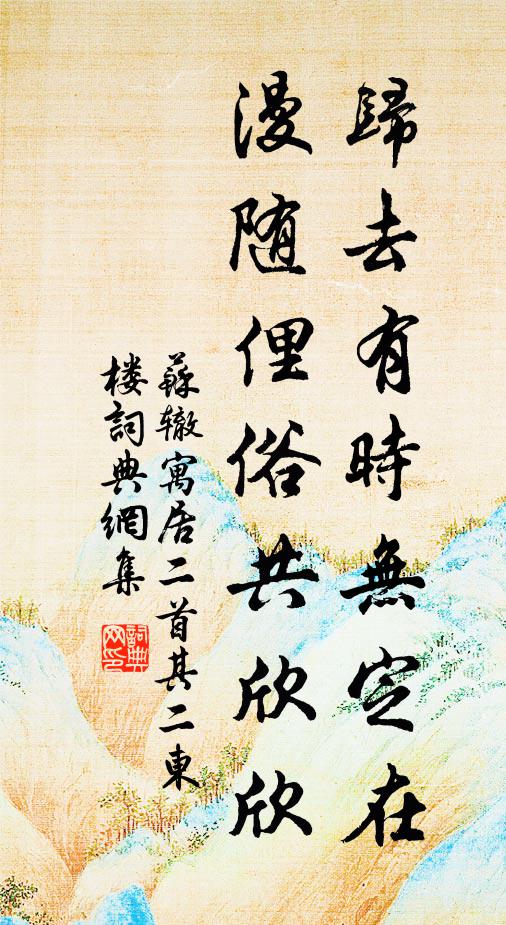 歸去有時無定在
漫随俚俗共欣欣
蘇辙寓居二首其二東
楼詞典網集
詞典网印